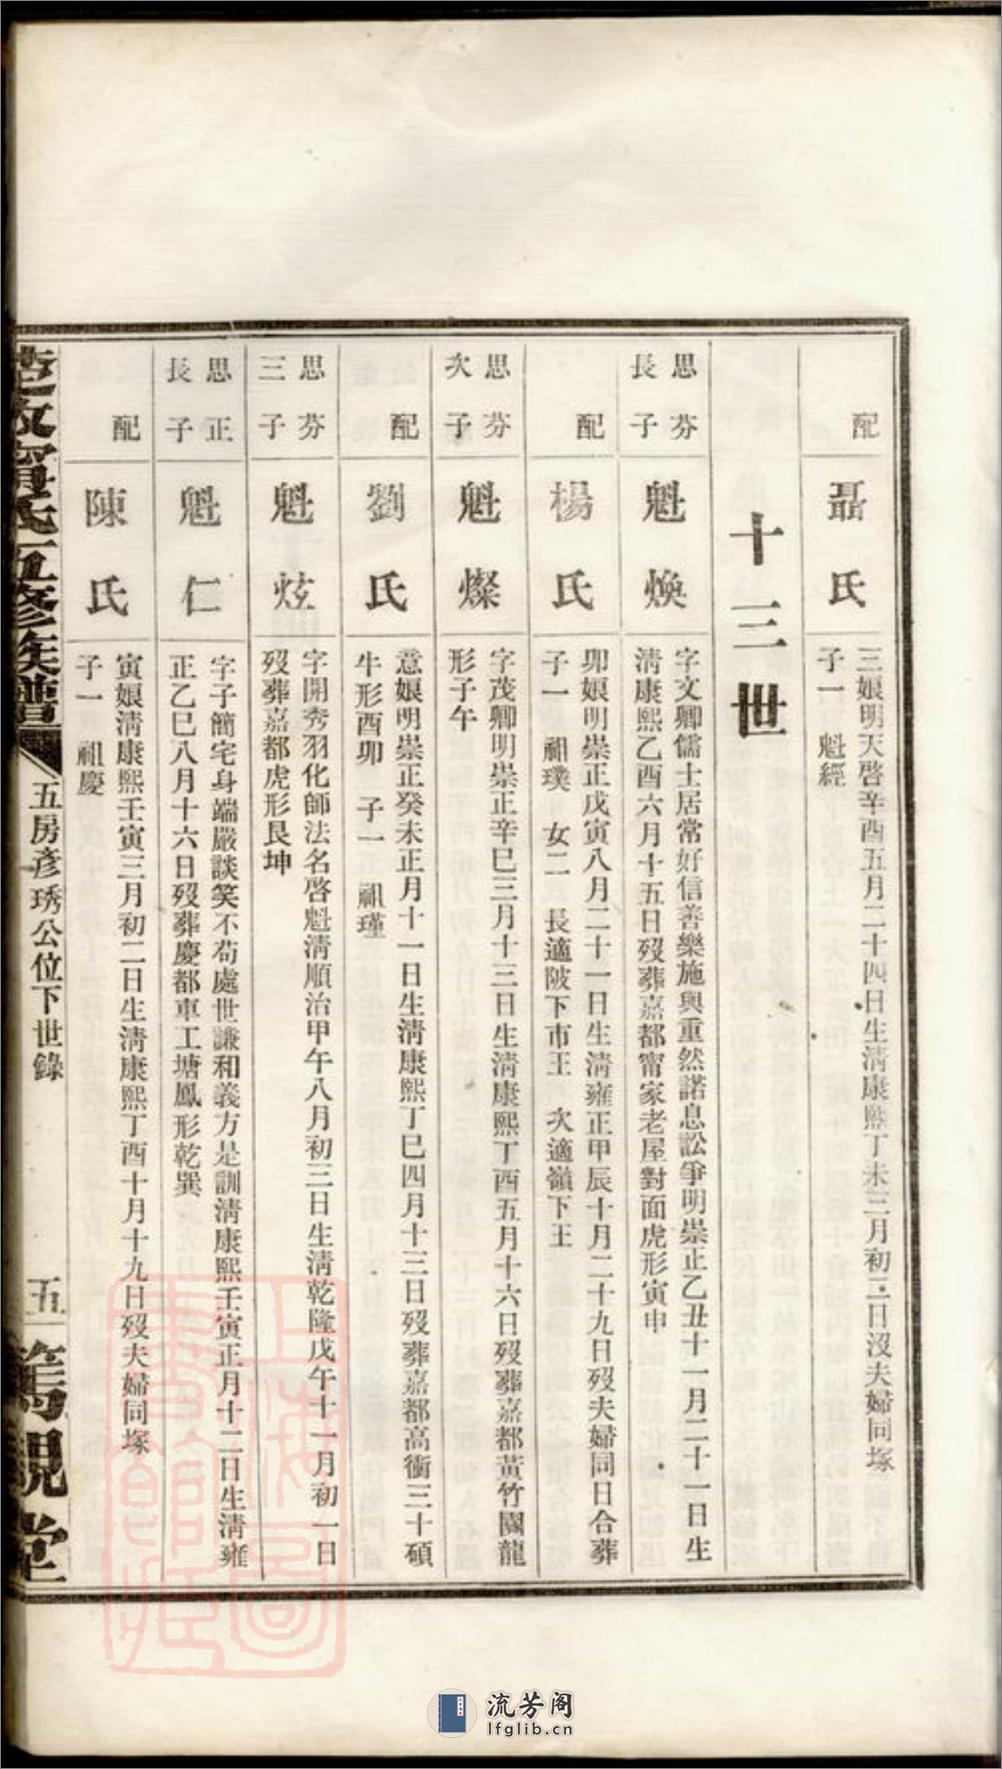 配
聶氏
三娘明天啓辛酉五月二十四日生淸康熙丁未三月初二日沒夫婦同塚
子一　魁經
十三世
思芬
長子
魁煥
字文卿儒士居常好信善樂施與重然諾息訟爭明崇正乙丑十一月二十一日生
淸康熙乙酉六月十五日歿葬嘉都甯家老屋對面虎形寅申
配
楊氏
卯娘明崇正戊寅八月二十一日生淸雍正甲辰十月二十九日歿夫婦同日合葬
子一　祖璞　女二　長適陂下市王　次適嶺下王
思芬
次子
魁燦
字茂卿明崇正辛巳三月十三日生淸康熙丁酉五月十六日歿葬嘉都黃竹園龍
形子午
配
劉氏
意娘明崇正癸未正月十一日生淸康熙丁巳四月十三日歿葬嘉都高衝三十碩
牛形酉卯　子一　祖瑾
思芬
三子
魁炫
字開秀羽化師法名啓魁淸順治甲午八月初三日生淸乾隆戊午十一月初一日
歿葬嘉都虎形艮坤
思正
長子
魁仁
字子簡宅身端嚴談笑不苟處世謙和義方是訓淸康熙壬寅正月十二日生淸雍
正乙巳八月十六日歿葬慶都車工塘鳳形乾巽
配
陳氏
寅娘淸康熙壬寅三月初二日生淸康熙丁酉十月十九日歿夫婦同塚
子一　祖慶
氏五修族譜
五房彥琇公位下世錄
五
篤親堂
上海圖書館藏
流芳阁
lfglib.cn